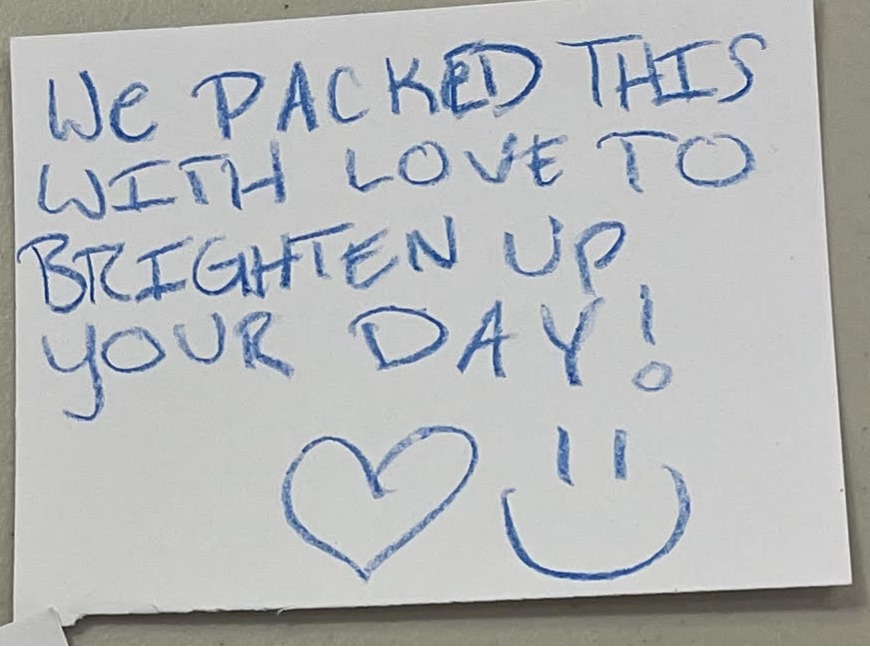 We PACKeD THIS
WITH LOVE TO
BRIGHTEN UP
YOUR DAY!